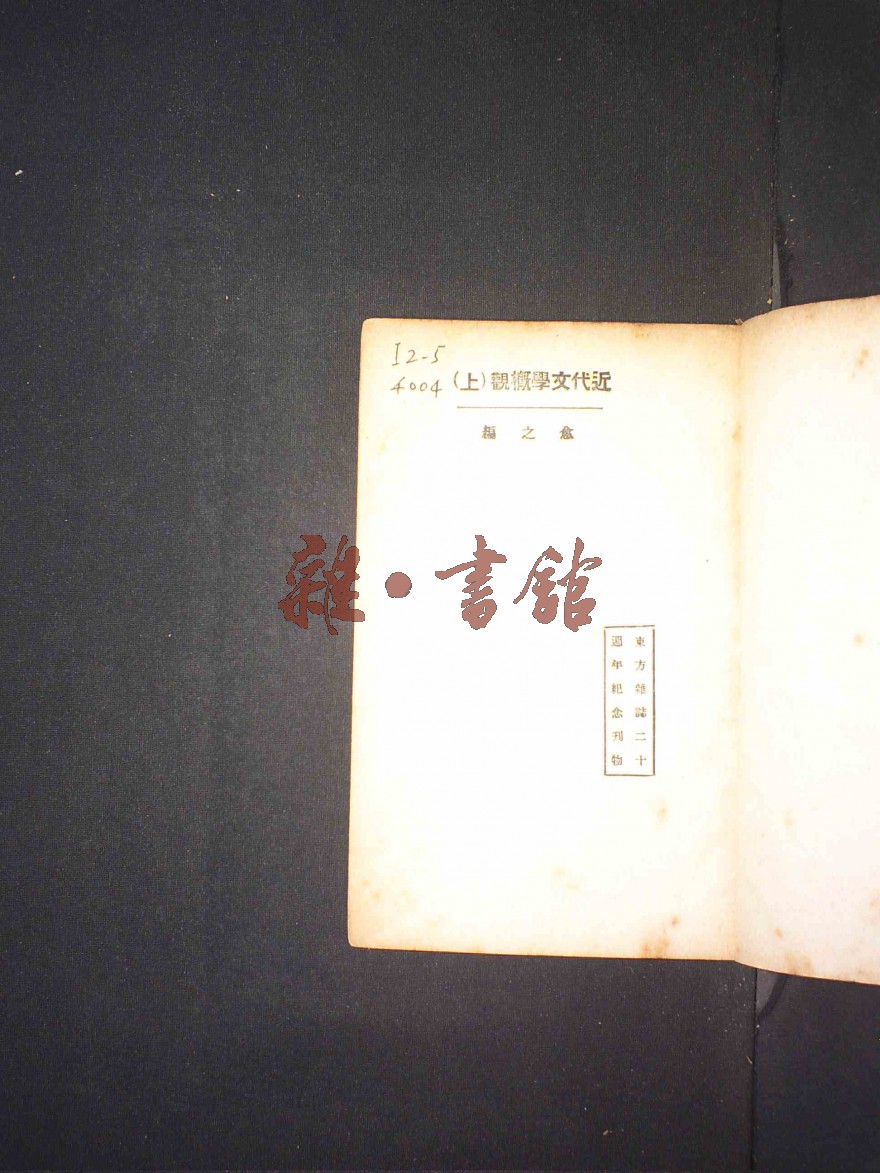 I2-5
4004
近代文學概觀(上)
愈之編
雜·書館
東方雜誌二十
週年紀念刊物